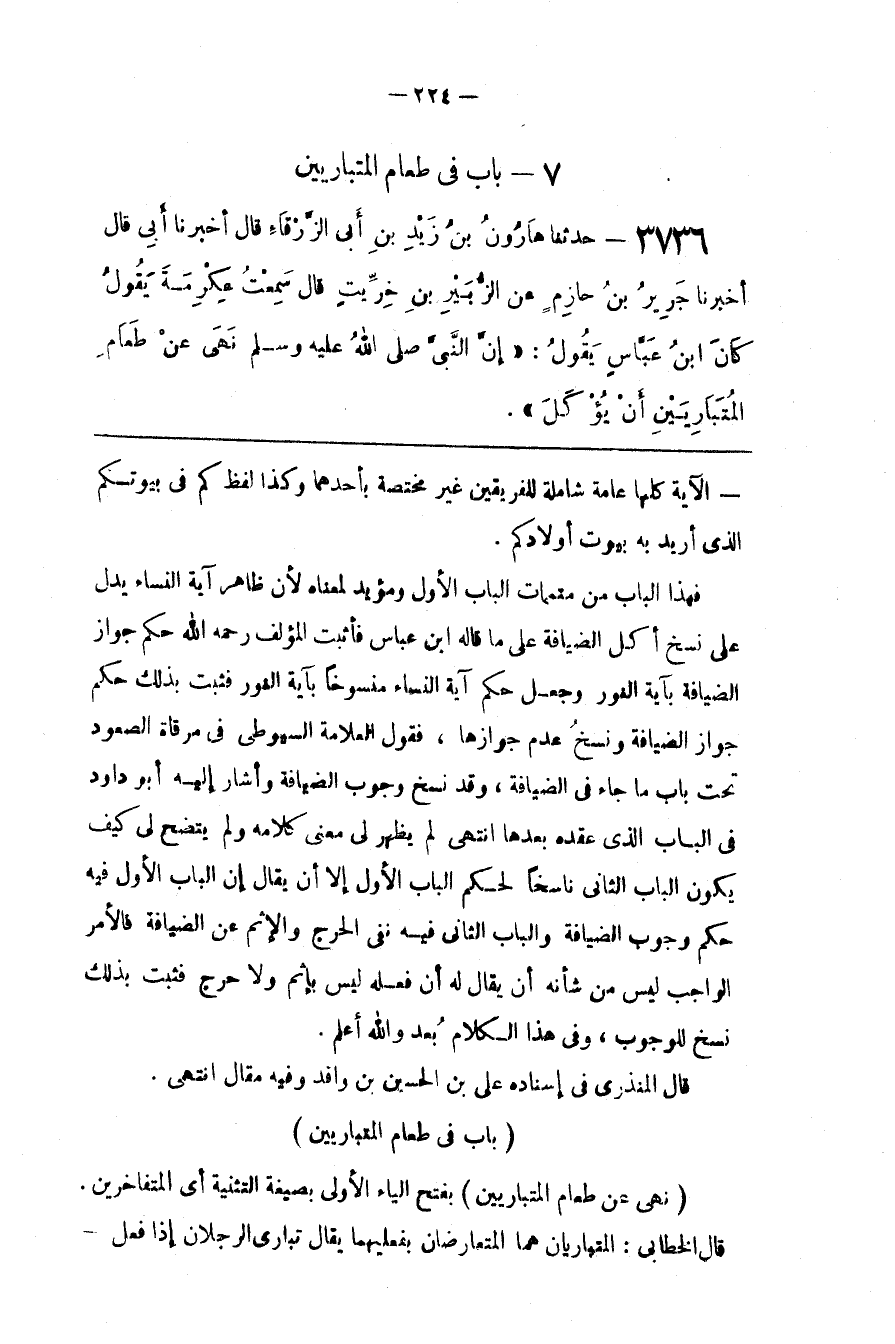 — ٢٢٤ —
٧ — باب فى طعام المتباريين
٣٧٣٦ — حدثنا هَارُونُ بنُ زَيْدِ بنِ أَبى الزَّرْقَاءِ قال أخبرنا أَبِي قال
أخبرنا جَرِيرُ بنُ حازِمٍ عن الزُّبَيْرِ بنِ خِرِّيتٍ قال سَمِعْتُ عِكْرِمَةَ يَقُولُ
كَانَ ابنُ عَبَّاسٍ يَقُولُ : « إنَّ النَّبىَّ صلى اللهُ عليه وسلم نَهَى عنْ طَعَامِ
المُتَبَارِيَيْنِ أَنْ يُؤْكَلَ » .
— الآية كلها عامة شاملة للفريقين غير مختصة بأحدهما وكذا لفظ كم فى بيوتكم
الذى أريد به بيوت أولادكم .
فهذا الباب من متممات الباب الأول ومؤيد لمعناه لأن ظاهر آية النساء يدل
على نسخ أكل الضيافة على ما قاله ابن عباس فأثبت المؤلف رحمه الله حكم جواز
الضيافة بآية النور وجعل حكم آية النساء منسوخاً بآية النور فثبت بذلك حكم
جواز الضيافة ونسخُ عدم جوازها ، فقول العلامة السيوطى فى مرقاة الصعود
تحت باب ما جاء فى الضيافة ، وقد نسخ وجوب الضيافة وأشار إليه أبو داود
فى الباب الذى عقده بعدها انتهى لم يظهر لى معنى كلامه ولم يتضح لى كيف
يكون الباب الثانى ناسخاً لحكم الباب الأول إلا أن يقال إن الباب الأول فيه
حكم وجوب الضيافة والباب الثانى فيه نفى الحرج والإثم عن الضيافة فالأمر
الواجب ليس من شأنه أن يقال له أن فعله ليس بإثم ولا حرج فثبت بذلك
نسخ للوجوب ، وفى هذا الكلام بُعد والله أعلم .
قال المنذرى فى إسناده على بن الحسين بن واقد وفيه مقال انتهى .
( باب فى طعام المتباريين )
( نهى عن طعام المتباريين ) بفتح الياء الأولى بصيغة التثنية أى المتفاخرين .
قال الخطابى : المتباريان هما المتعارضان بفعليهما يقال تبارى الرجلان إذا فعل —